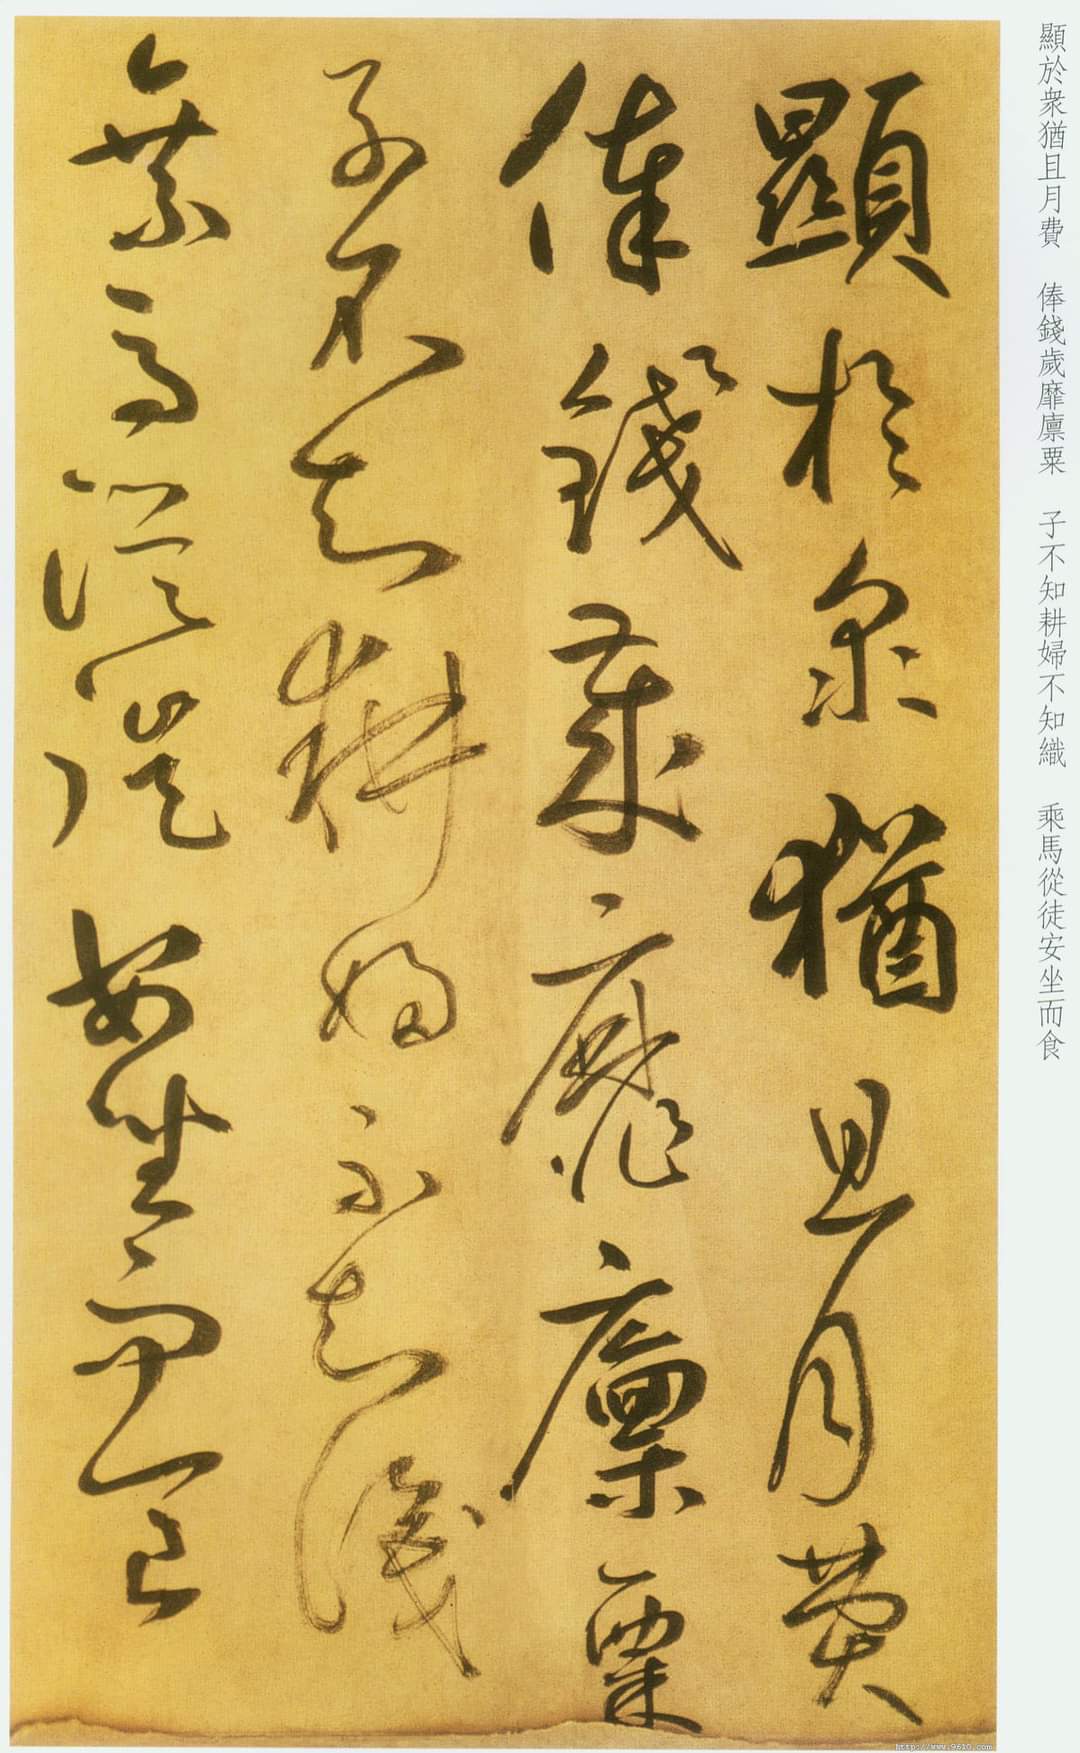 顯於衆猶且月費
俸錢歲靡廪粟
子不知耕婦不知織
乘馬從徒安坐而食
顯於衆猶且月費　俸錢歲靡廪粟　子不知耕婦不知織　乘馬從徒安坐而食
http://www.9610.com